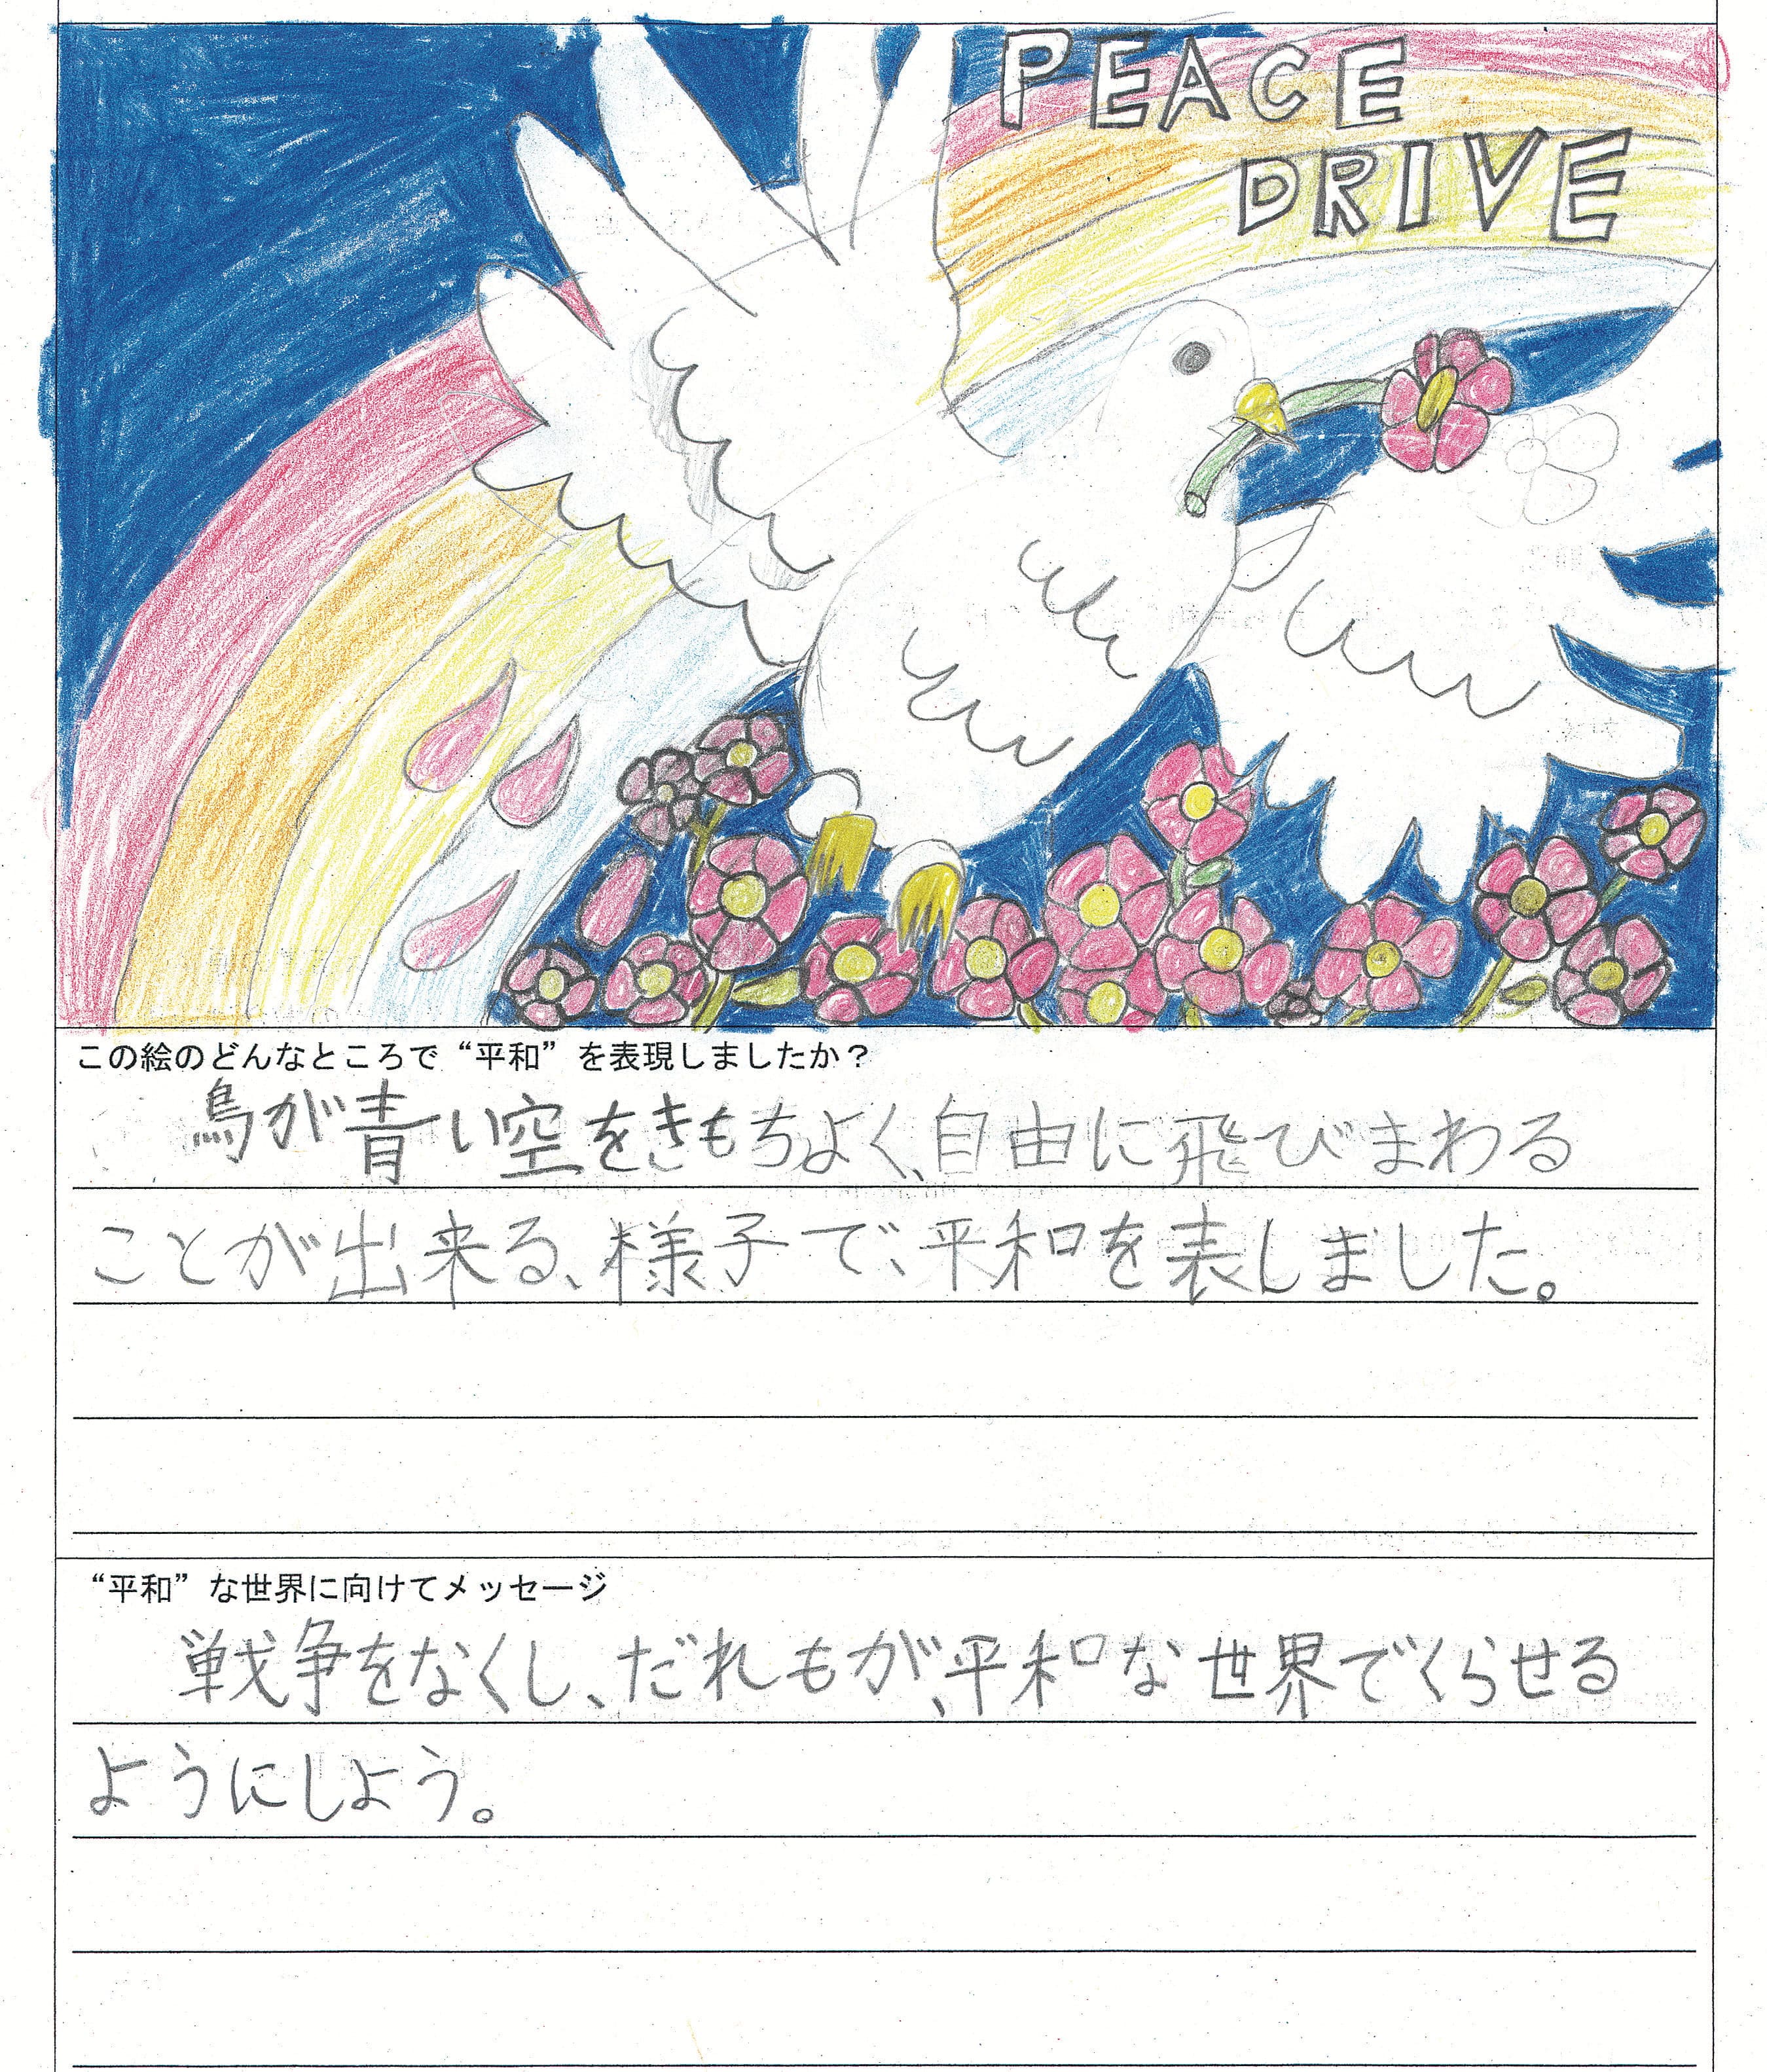 PEACE
DRIVE
この絵のどんなところで“平和”を表現しましたか？
鳥が青い空をきもちよく、自由に飛びまわる
ことが出来る、様子で、平和を表しました。
“平和”な世界に向けてメッセージ
戦争をなくし、だれもが、平和な世界でくらせる
ようにしよう。